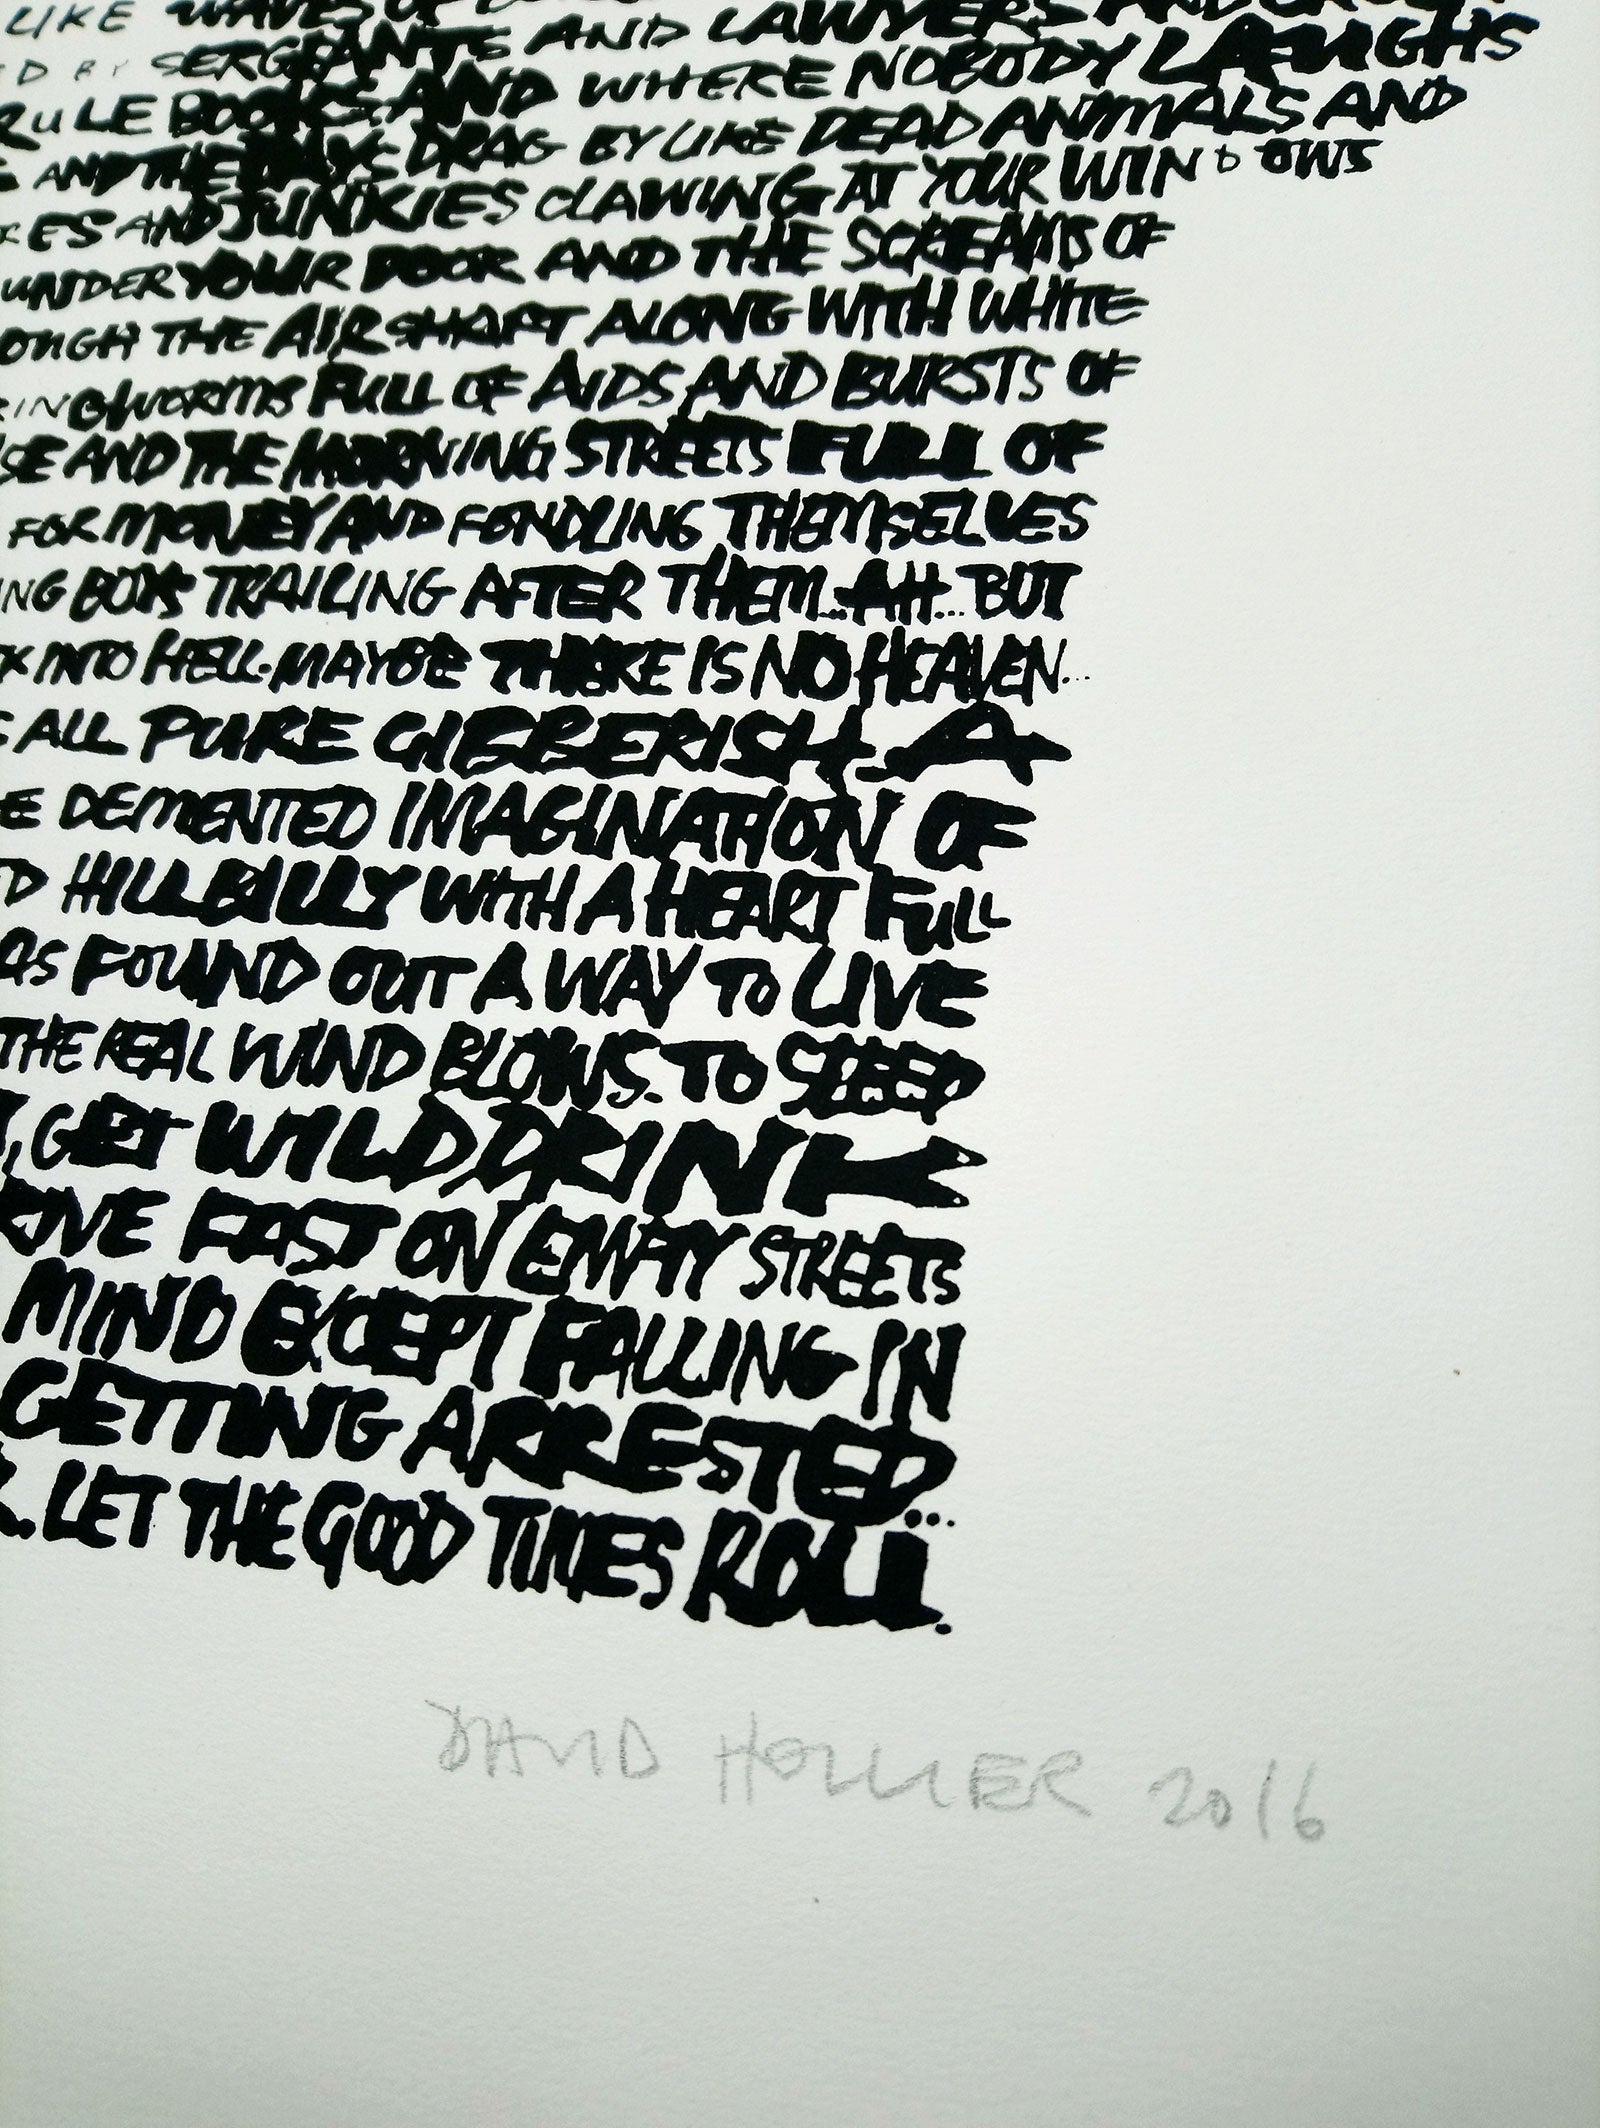 LIKE WAVES OF
BY SERGEANTS AND LAWYERS AND
RULE BOOKS AND WHERE NOBODY LAUGHS
AND THE DAYS DRAG BY LIKE DEAD ANIMALS AND
AND JUNKIES CLAWING AT YOUR WINDOWS
UNDER YOUR DOOR AND THE SCREAMS OF
THE AIRSHAFT ALONG WITH WHITE
RINGWORMS FULL OF AIDS AND BURSTS OF
SE AND THE MORNING STREETS FULL OF
FOR MONEY AND FONDLING THEMSELVES
ING BOYS TRAILING AFTER THEM...AH...BUT
INTO HELL. MAYBE THERE IS NO HEAVEN...
ALL PURE GIBBERISH. A
E DEMENTED IMAGINATION OF
D HILLBILLY WITH A HEART FULL
AS FOUND OUT A WAY TO LIVE
THE REAL WIND BLOWS. TO SLEEP
, GET WILD, DRINK
RIVE FAST ON EMPTY STREETS
MIND EXCEPT FALLING IN
GETTING ARRESTED...
. LET THE GOOD TIMES ROLL.
DAVID HOLLIER 2016